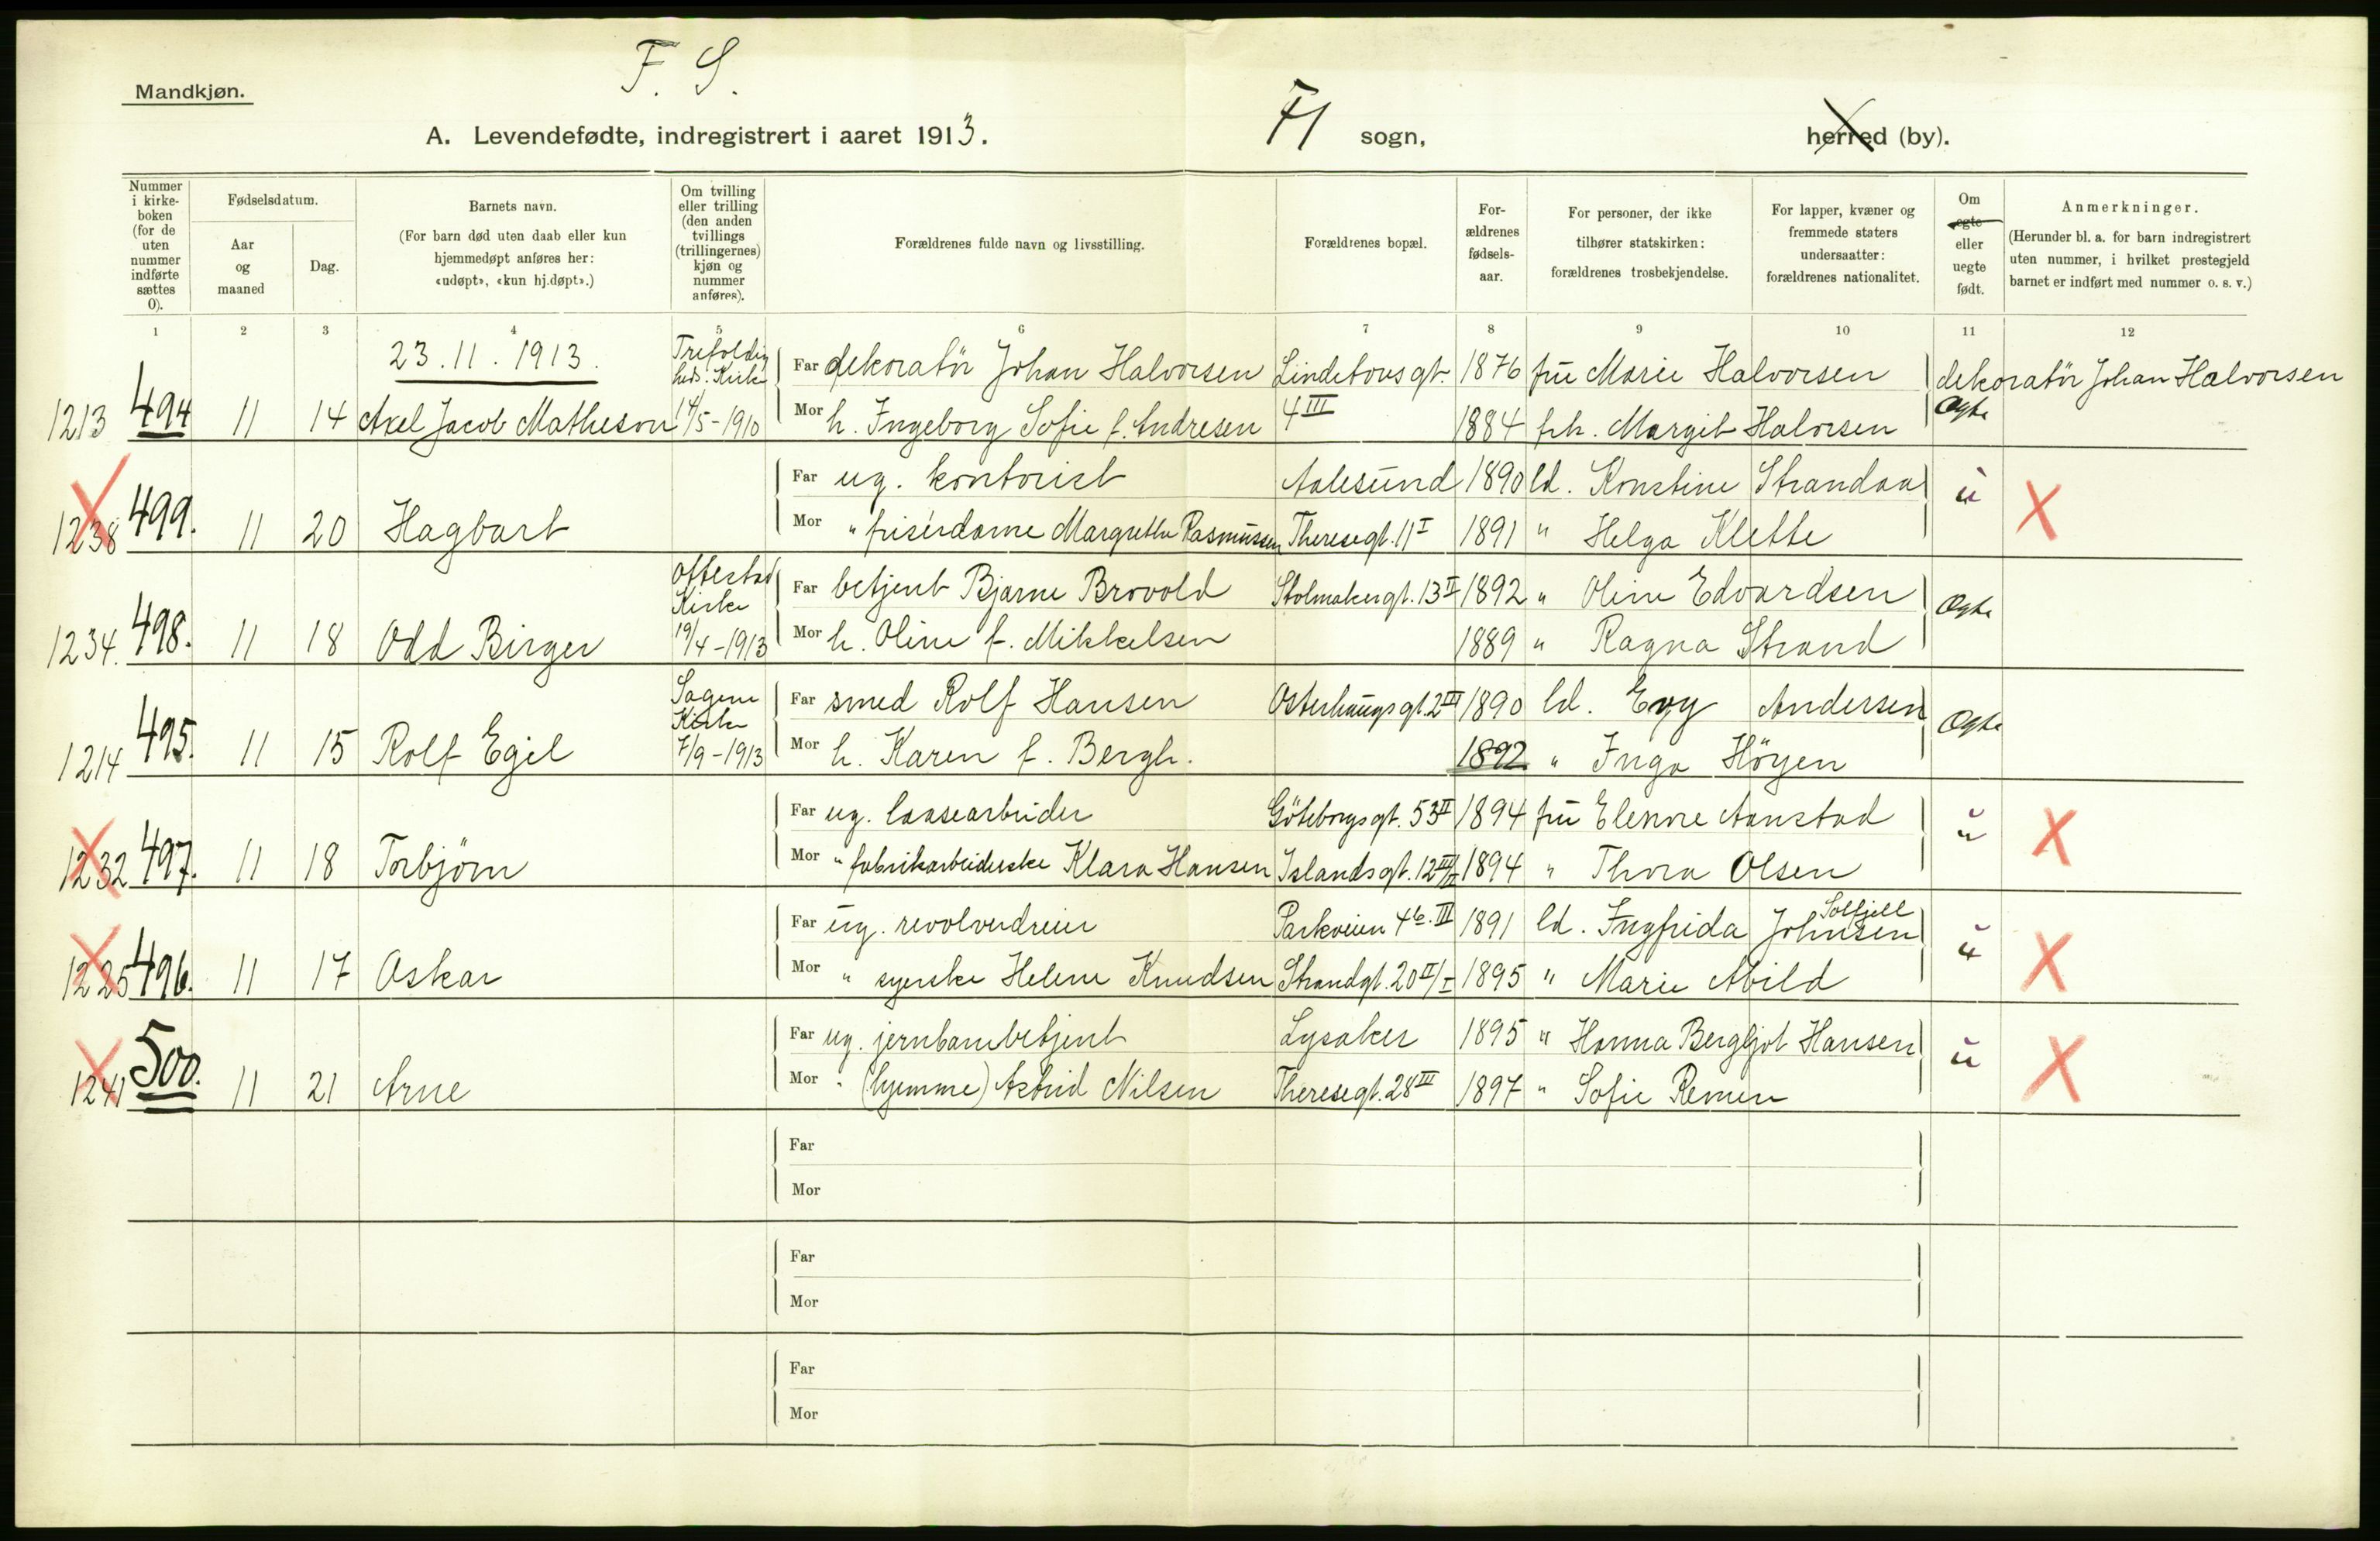 F. S.
Mandkjøn.
A. Levendefødte, indregistrert i aaret 1913. sogn, herred (by).
Nummer i kirke-boken (for de uten nummer indførte sættes 0).
Fødselsdatum.
Aar og maaned
Dag.
Barnets navn.
(For barn død uten daab eller kun hjemmedøpt anføres her: «udøpt», «kun hj.døpt».)
Om tvilling eller trilling (den anden tvillings (trillingernes) kjøn og nummer anføres).
Forældrenes fulde navn og livsstilling.
Forældrenes bopæl.
For-ældrenes fødsels-aar.
For personer, der ikke tilhører statskirken: forældrenes trosbekjendelse.
For lapper, kvæner og fremmede staters undersaatter: forældrenes nationalitet.
Om egte eller uegte født.
Anmerkninger.
(Herunder bl. a. for barn indregistrert uten nummer, i hvilket prestegjeld barnet er indført med nummer o. s. v.)
1 2 3 4 5 6 7 8 9 10 11 12
23.11.1913.
Trefoldig heds. Kirke Far dekoratör Johan Halvorsen Lindstowsgt. 1876 frue Marie Halvorsen dekoratör Johan Halvorsen
1213 494 11 14 Axel Jacob Matheson 14/5-1910 Mor h. Ingeborg Sofie f. Andresen 4 III 1884 frk. Margit Halvorsen Ogte
Far ug. kontorist Aalesund 1890 ld. Konstine Strandaa u X
1238 499. 11 20 Hagbart Mor " frisérdame Margrethe Rasmussen Theresegt. 11 I 1891 " Helga Klette
Ottestad Kirke Far betjent Bjarne Brovold Stolmakergt. 13 II 1892 " Oline Edvardsen Ogte
1234. 498. 11 18 Odd Birger 19/4-1913 Mor h. Oline f. Mikkelsen 1889 " Ragna Strand
Sagene Kirke Far smed Rolf Hansen Osterhaugsgt. 2 III 1890 ld. Evy Andersen Ogte
1214 495. 11 15 Rolf Egil 7/9-1913 Mor h. Karen f. Bergh. 1892 " Inga Höyen
Far ug. laasearbeider Göteborgsgt. 53 II 1894 fru Elenore Aanstad u X
1232 497. 11 18 Torbjörn Mor " fabrikarbeiderske Klara Hansen Islandsgt. 12 1894 " Thora Olsen
Solfjell
Far ug. revolverdreier Parkveien 4 b. III 1891 ld. Ingfrida Johnsen u X
1225 496. 11 17 Oskar Mor " syerske Helene Knudsen Strandgt. 20 II/I 1895 " Marie Abild
Far ug. jernbanebetjent Lysaker 1895 " Hanna Bergljot Hansen u X
1241 500. 11 21 Arne Mor " (hjemme) Astrid Nilsen Theresegt. 28 III 1897 " Sofie Remen
Far
Mor
Far
Mor
Far
Mor